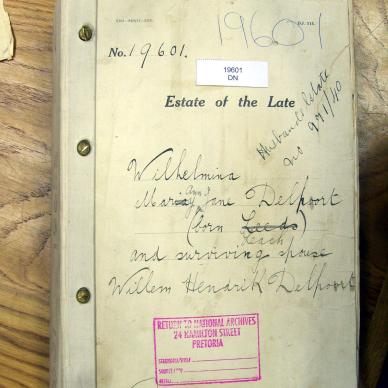 19601
No. 19601.
19601
DN
Estate of the Late
Husband's Estate
no 971/40
Wilhelmina
Ann
Maria Jane Delport
(born Leeds)
Leach
and surviving spouse
Willem Hendrik Delport
RETURN TO NATIONAL ARCHIVES
24 HAMILTON STREET
PRETORIA